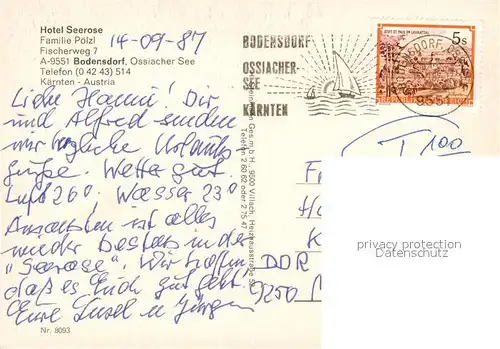 Hotel Seerose
Familie Pölzl
Fischerweg 7
A-9551 Bodensdorf, Ossiacher See
Telefon (0 42 43) 514
Kärnten - Austria
14-09-87
Liebe Hanni! Dir
und Alfred senden
wir herzliche Urlaubs
grüße. Wetter gut.
Luft 26°, Wasser 23°
Ansonsten ist alles
wieder bestens in der
„Seerose". Wir hoffen,
daß es Euch gut geht.
Eure Ursel u Jürgen
Nr. 8093
BODENSDORF
OSSIACHER-
SEE
KÄRNTEN
STIFT ST. PAUL IM LAVANTTAL
5s
REPUBLIK ÖSTERREICH
9551
T 100
Ges.m.b.H., 9500 Villach, Heizhausstraße
Telefon 2 62 62 oder 2 75 47
Fr
Ha
K
DDR
9250
privacy protection
Datenschutz